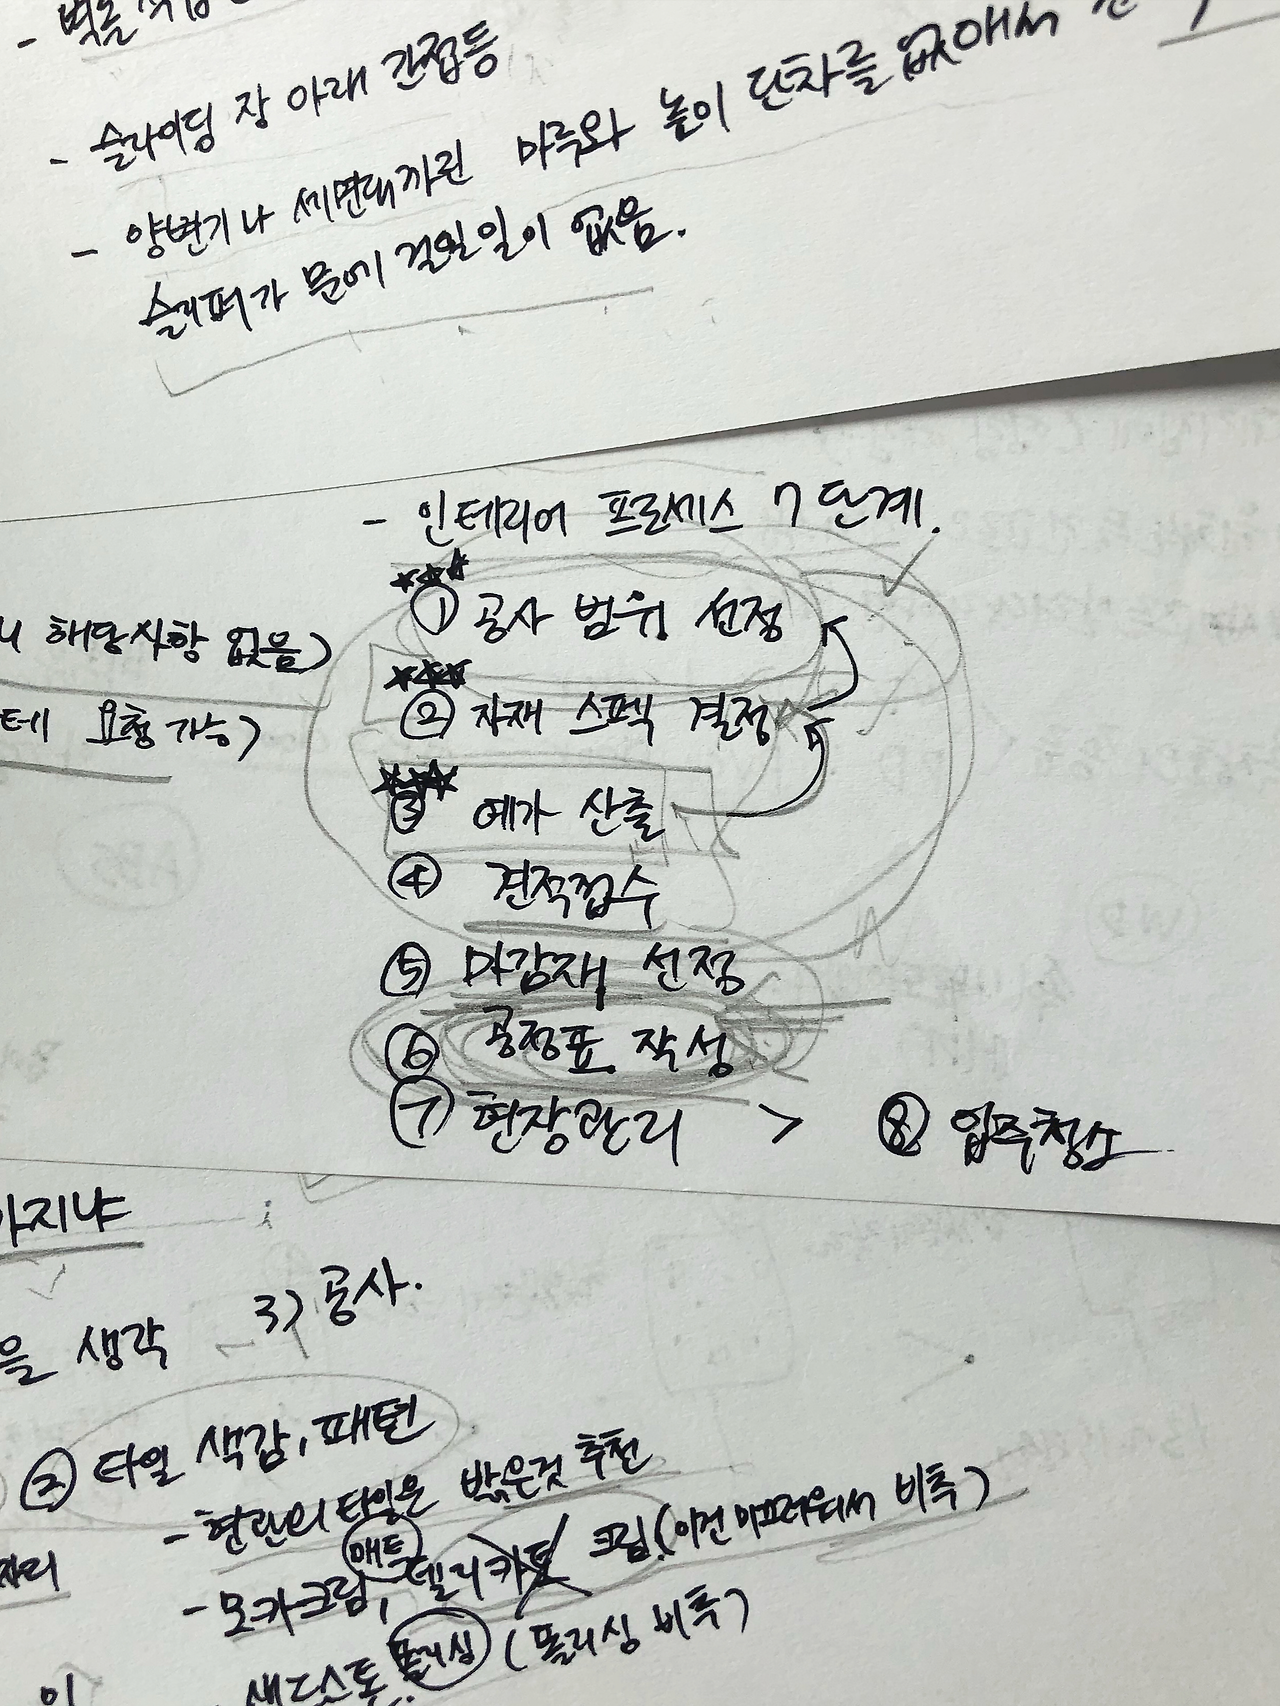 - 벽돌
- 슬라이딩 장 아래 간접등
- 양변기나 세면대까린 마루와 높이 단차를 없애서
슬리퍼가 문에 걸릴일이 없음.
- 인테리어 프로세스 7단계.
① 공사 범위 선정
해당사항 없음)
② 자재 스펙 결정
요청가능)
③ 예가 산출
④ 견적접수
⑤ 마감재 선정
⑥ 공정표 작성
⑦ 현장관리 > ⑧ 입주청소
을 생각 3) 공사.
② 타일 색감, 패턴
- 현관의 타일은 밝은것 추천
- 모카크림, 매트 델리카토 크림.(이건 미끄러워서 비추)
샌드스톤. 폴리싱 (폴리싱 비추)